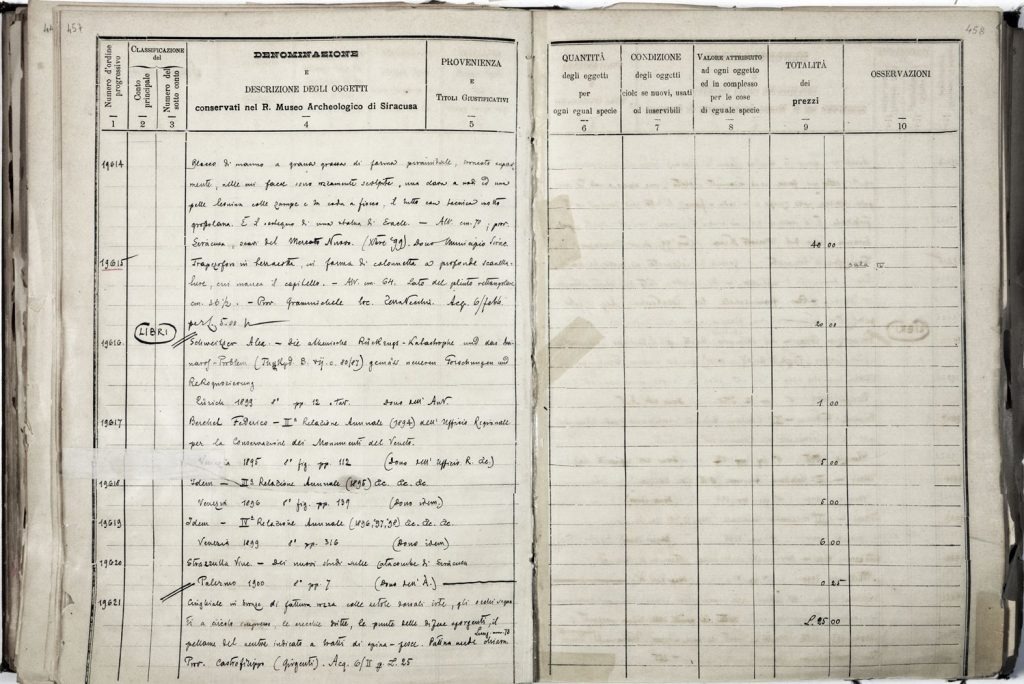 457
458
Numero d'ordine progressivo
CLASSIFICAZIONE
del
Conto principale
Numero del sotto conto
DENOMINAZIONE
E
DESCRIZIONE DEGLI OGGETTI
conservati nel R. Museo Archeologico di Siracusa
PROVENIENZA
E
TITOLI GIUSTIFICATIVI
QUANTITÀ
degli oggetti
per
ogni egual specie
CONDIZIONE
degli oggetti
cioè: se nuovi, usati
od inservibili
VALORE ATTRIBUITO
ad ogni oggetto
ed in complesso
per le cose
di eguale specie
TOTALITÀ
dei
prezzi
OSSERVAZIONI
1 2 3 4 5 6 7 8 9 10
19614 Blocco di marmo a grana grossa di forma piramidale,
mente, nelle cui facce sono rozzamente scolpite, una clava a nodi ed una
pelle leonina colle zampe e la coda a fiocco, il tutto con tecnica molto
grossolana. È il sostegno di una statua di Eracle. — Alt. cm. 70; prov.
Siracusa, scavi del Mercato Nuovo. ('99). Dono Municipio Sirac. 40 00
19615 Trapezoforo in terracotta, in forma di colonnetta a profonde scanella-
ture, cui manca il capitello. — Alt. cm. 64. Lato del plinto rettangolare sala IV
cm. 26 ½. — Prov. Grammichele loc. Terravecchia. Acq. 6/febb.
per L. 5.00 20 00
LIBRI
19616 Schweitzer Alex. — Die athenische Rückzugs-Katastrophe und das
-Problem (Thukyd B. VII. c. 80/87) gemäß neueren Forschungen und
Rekognoszierung
Zürich 1899 8° pp. 12 e tav. Dono dell' Aut. 1 00
19617 Berchet Federico — IIª Relazione Annuale (1894) dell' Ufficio Regionale
per la Conservazione dei Monumenti del Veneto.
Venezia 1895 8° fig. pp. 112 (Dono dell' Ufficio R. &c.) 5 00
19618 Idem — IIIª Relazione Annuale (1895) &c. &c. &c.
Venezia 1896 8° fig. pp. 139 (Dono idem) 5 00
19619 Idem — IVª Relazione Annuale (1896, '97, '98) &c. &c. &c.
Venezia 1899 8° pp. 316 (Dono idem) 6 00
19620 Strazzulla Vinc. — Dei nuovi studi nelle Catacombe di Siracusa
Palermo 1900 8° pp. 7 (Dono dell' A.) 0 25
19621 Cinghiale in bronzo, di fattura rozza colle setole dorsali irte, gli occhi segna-
ti a circolo impresso, le orecchie dritte, le punte delle difese sporgenti, il
pellame del ventre indicato a tratti di spina-pesce. Patina verde
Prov. Castrofilippo (Girgenti). Acq. 6/II p. L. 25 L. 25 00